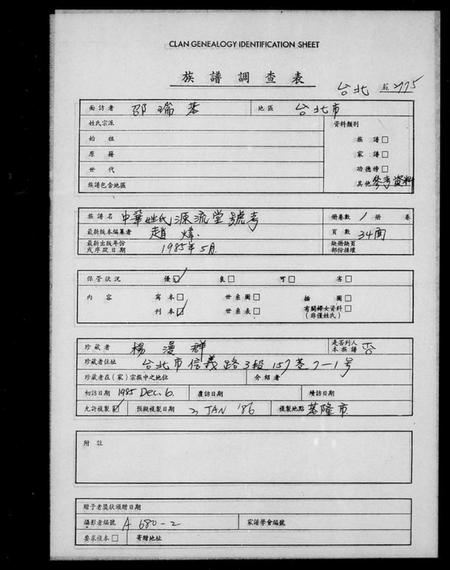 CLAN GENEALOGY IDENTIFICATION SHEET
族譜調查表
台北 2775
面訪者 邵瑞恭 地區 台北市
姓氏宗派 資料類別
始祖 族譜□
原籍 家譜□
世代 功德榜□
族譜包含地區 其他 參考資料
族譜名 中華姓氏源流堂號考 冊卷數 1 冊
最新版本編纂者 趙煒 頁數 34面
最新出版年份或序跋日期 1985年5月 缺冊缺頁部份請填
保管狀況 優☑ 良□ 可□ 劣□
內容 寫本□ 世系圖□ 插圖□
刊本☑ 世系表□ 有關婦女資料(非僅姓氏)□
珍藏者 楊漫群 是否列入本族譜 否
珍藏者住址 台北市信義路3段157巷7-1號
珍藏者在(家)宗族中之地位 介紹者
初訪日期 1985 Dec. 6. 複訪日期 續訪日期
允許複製☑ 預擬複製日期 2 JAN '86 複製地點 基隆市
附註
贈予者獎狀頒贈日期
攝影者編號 A 680-2 家譜學會編號
要求複本□ 寄贈地址